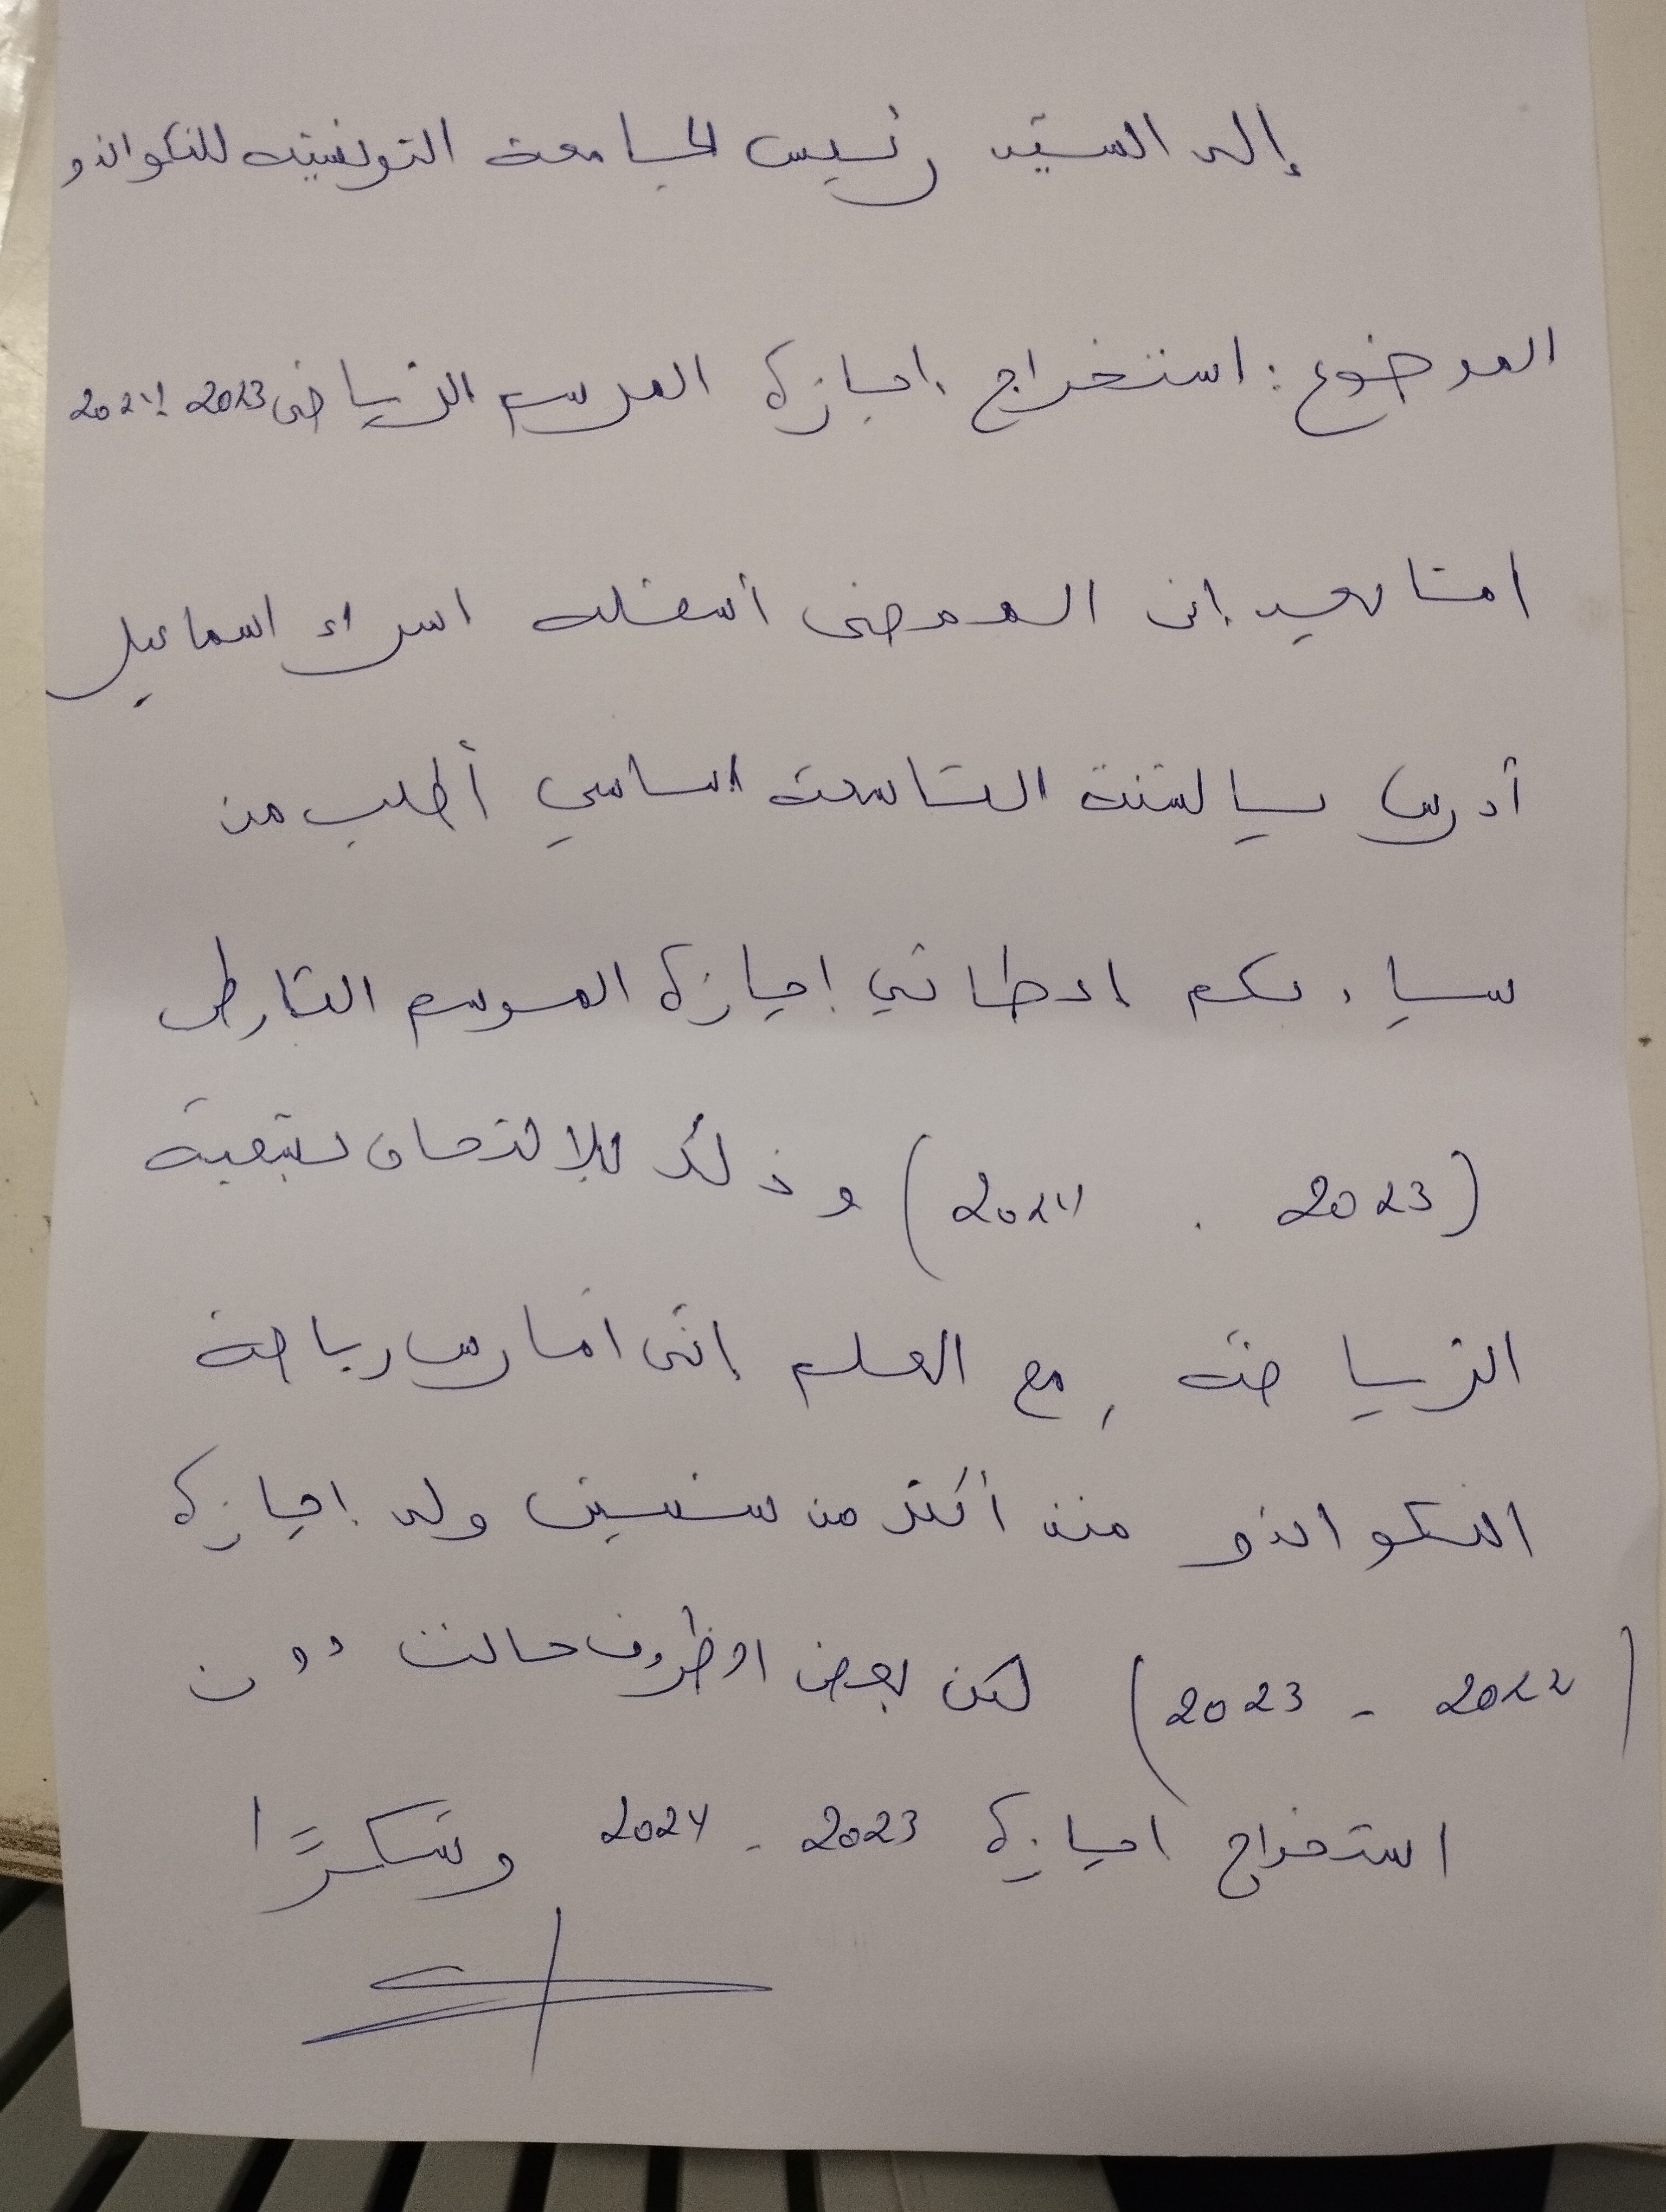 إلى السيّد رئيس الجامعة التونسيّة للتكواندو
الموضوع: استخراج إجازة الموسم الرّياضي 2023 / 2024
أمّا بعد إني الممضي أسفله اسراء اسماعيل
أدرس بالسّنة التاسعة اساسي أطلب من
سيادتكم اعطائي إجازة الموسم الفارط
(2023 - 2024) وذلك للالتحاق
الرّياضيّة، مع العلم إنّي أمارس رياضة
التكواندو منذ أكثر من سنتين ولي إجازة
(2022 - 2023) لكن بعض الظروف حالت دون
استخراج اجازة 2023 - 2024 وشكرًا